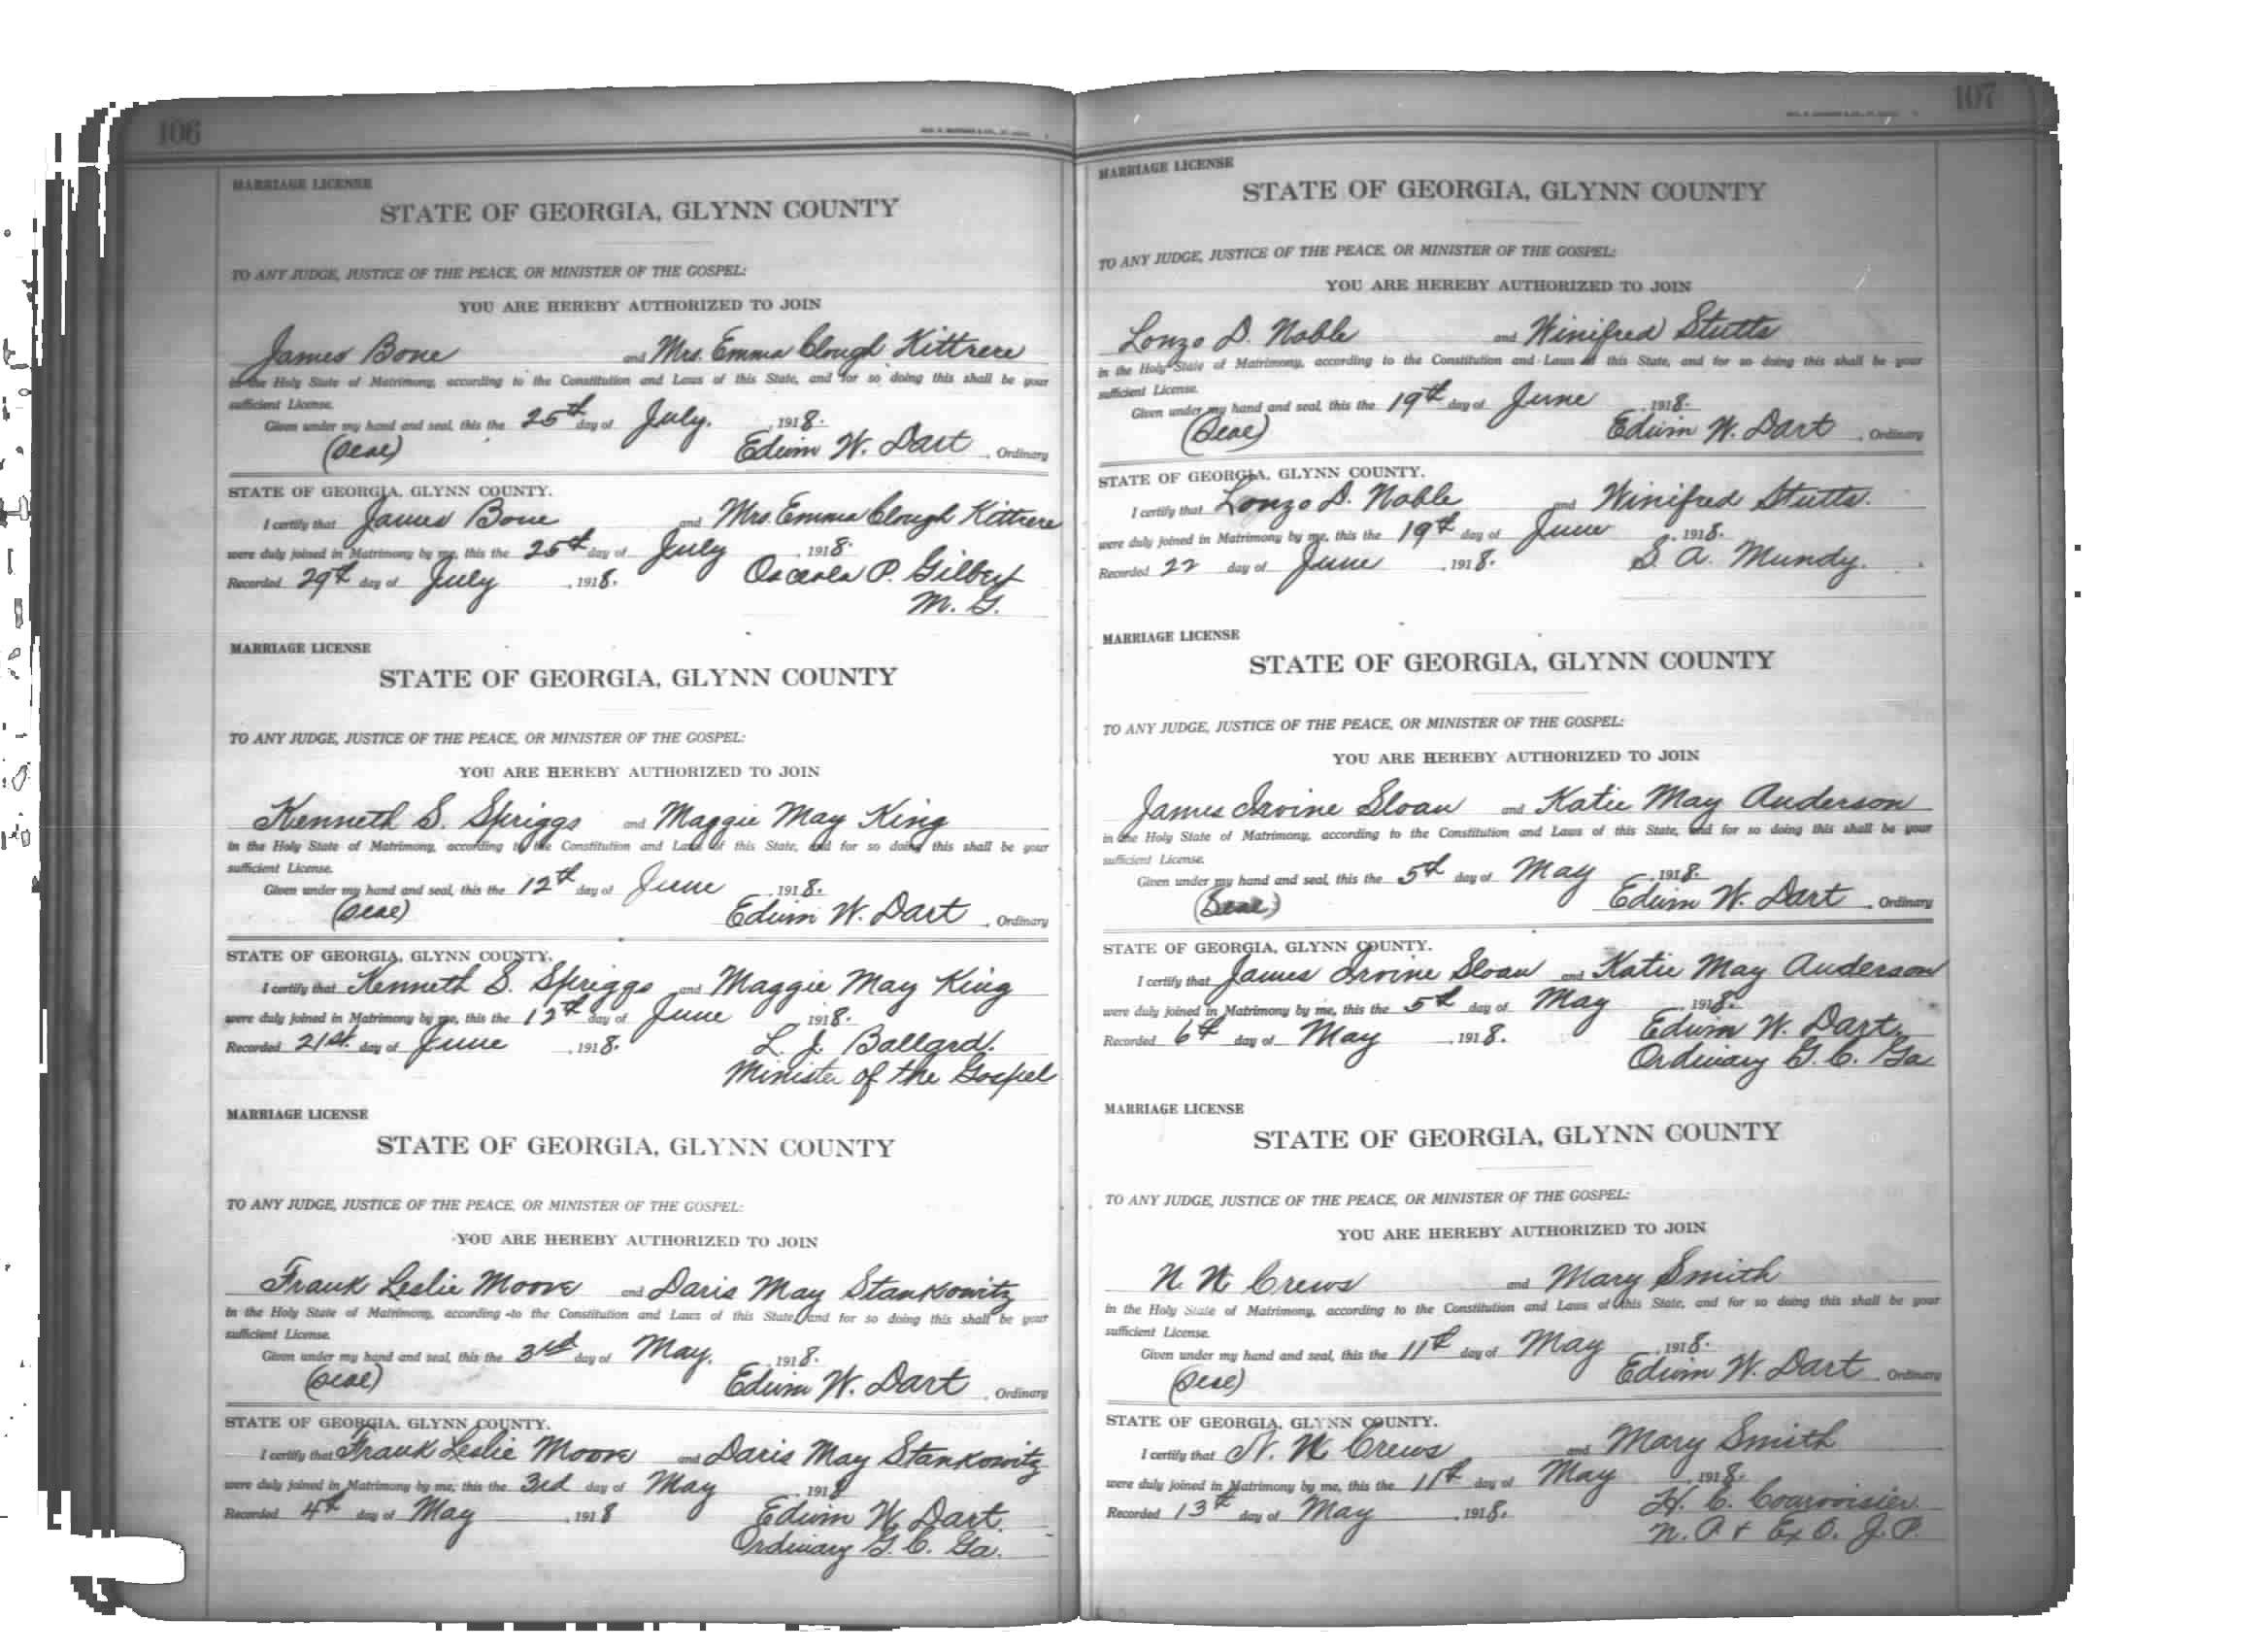 106
MARRIAGE LICENSE
STATE OF GEORGIA, GLYNN COUNTY
TO ANY JUDGE, JUSTICE OF THE PEACE, OR MINISTER OF THE GOSPEL:
YOU ARE HEREBY AUTHORIZED TO JOIN
James Bone and Mrs. Emma Clough Kittrere
in the Holy State of Matrimony, according to the Constitution and Laws of this State, and for so doing this shall be your
sufficient License.
Given under my hand and seal, this the 25th day of July. , 1918.
(Seal) Edwin W. Dart , Ordinary
STATE OF GEORGIA, GLYNN COUNTY.
I certify that James Bone and Mrs. Emma Clough Kittrere
were duly joined in Matrimony by me, this the 25th day of July , 1918.
Recorded 29th day of July , 1918. Osceola P. Gilbert
M. G.
MARRIAGE LICENSE
STATE OF GEORGIA, GLYNN COUNTY
TO ANY JUDGE, JUSTICE OF THE PEACE, OR MINISTER OF THE GOSPEL:
YOU ARE HEREBY AUTHORIZED TO JOIN
Kenneth S. Spriggs and Maggie May King
in the Holy State of Matrimony, according to the Constitution and Laws of this State, and for so doing this shall be your
sufficient License.
Given under my hand and seal, this the 12th day of June , 1918.
(Seal) Edwin W. Dart , Ordinary
STATE OF GEORGIA, GLYNN COUNTY.
I certify that Kenneth S. Spriggs and Maggie May King
were duly joined in Matrimony by me, this the 12th day of June , 1918.
Recorded 21st. day of June , 1918. L. J. Ballard.
Minister of the Gospel
MARRIAGE LICENSE
STATE OF GEORGIA, GLYNN COUNTY
TO ANY JUDGE, JUSTICE OF THE PEACE, OR MINISTER OF THE GOSPEL:
YOU ARE HEREBY AUTHORIZED TO JOIN
Frank Leslie Moore and Daris May Stankowitz
in the Holy State of Matrimony, according to the Constitution and Laws of this State, and for so doing this shall be your
sufficient License.
Given under my hand and seal, this the 3rd day of May. , 1918.
(Seal) Edwin W. Dart , Ordinary
STATE OF GEORGIA, GLYNN COUNTY.
I certify that Frank Leslie Moore and Daris May Stankowitz
were duly joined in Matrimony by me, this the 3rd day of May , 1918
Recorded 4th day of May , 1918 Edwin W. Dart.
Ordinary G. C. Ga.
107
MARRIAGE LICENSE
STATE OF GEORGIA, GLYNN COUNTY
TO ANY JUDGE, JUSTICE OF THE PEACE, OR MINISTER OF THE GOSPEL:
YOU ARE HEREBY AUTHORIZED TO JOIN
Lonzo D. Noble and Winifred Stutts
in the Holy State of Matrimony, according to the Constitution and Laws of this State, and for so doing this shall be your
sufficient License.
Given under my hand and seal, this the 19th day of June , 1918.
(Seal) Edwin W. Dart , Ordinary
STATE OF GEORGIA, GLYNN COUNTY.
I certify that Lonzo D. Noble and Winifred Stutts.
were duly joined in Matrimony by me, this the 19th day of June , 1918.
Recorded 22 day of June , 1918. S. A. Mundy.
MARRIAGE LICENSE
STATE OF GEORGIA, GLYNN COUNTY
TO ANY JUDGE, JUSTICE OF THE PEACE, OR MINISTER OF THE GOSPEL:
YOU ARE HEREBY AUTHORIZED TO JOIN
James Irvine Sloan and Katie May Anderson
in the Holy State of Matrimony, according to the Constitution and Laws of this State, and for so doing this shall be your
sufficient License.
Given under my hand and seal, this the 5th day of May , 1918.
(Seal) Edwin W. Dart , Ordinary
STATE OF GEORGIA, GLYNN COUNTY.
I certify that James Irvine Sloan and Katie May Anderson
were duly joined in Matrimony by me, this the 5th day of May , 1918.
Recorded 6th day of May , 1918. Edwin W. Dart.
Ordinary G. C. Ga
MARRIAGE LICENSE
STATE OF GEORGIA, GLYNN COUNTY
TO ANY JUDGE, JUSTICE OF THE PEACE, OR MINISTER OF THE GOSPEL:
YOU ARE HEREBY AUTHORIZED TO JOIN
N. N. Crews and Mary Smith
in the Holy State of Matrimony, according to the Constitution and Laws of this State, and for so doing this shall be your
sufficient License.
Given under my hand and seal, this the 11th day of May , 1918.
(Seal) Edwin W. Dart , Ordinary
STATE OF GEORGIA, GLYNN COUNTY.
I certify that N. N. Crews and Mary Smith
were duly joined in Matrimony by me, this the 11th day of May , 1918.
Recorded 13th day of May , 1918. H. C. Courvoisier.
N. P. & Ex O. J. P.